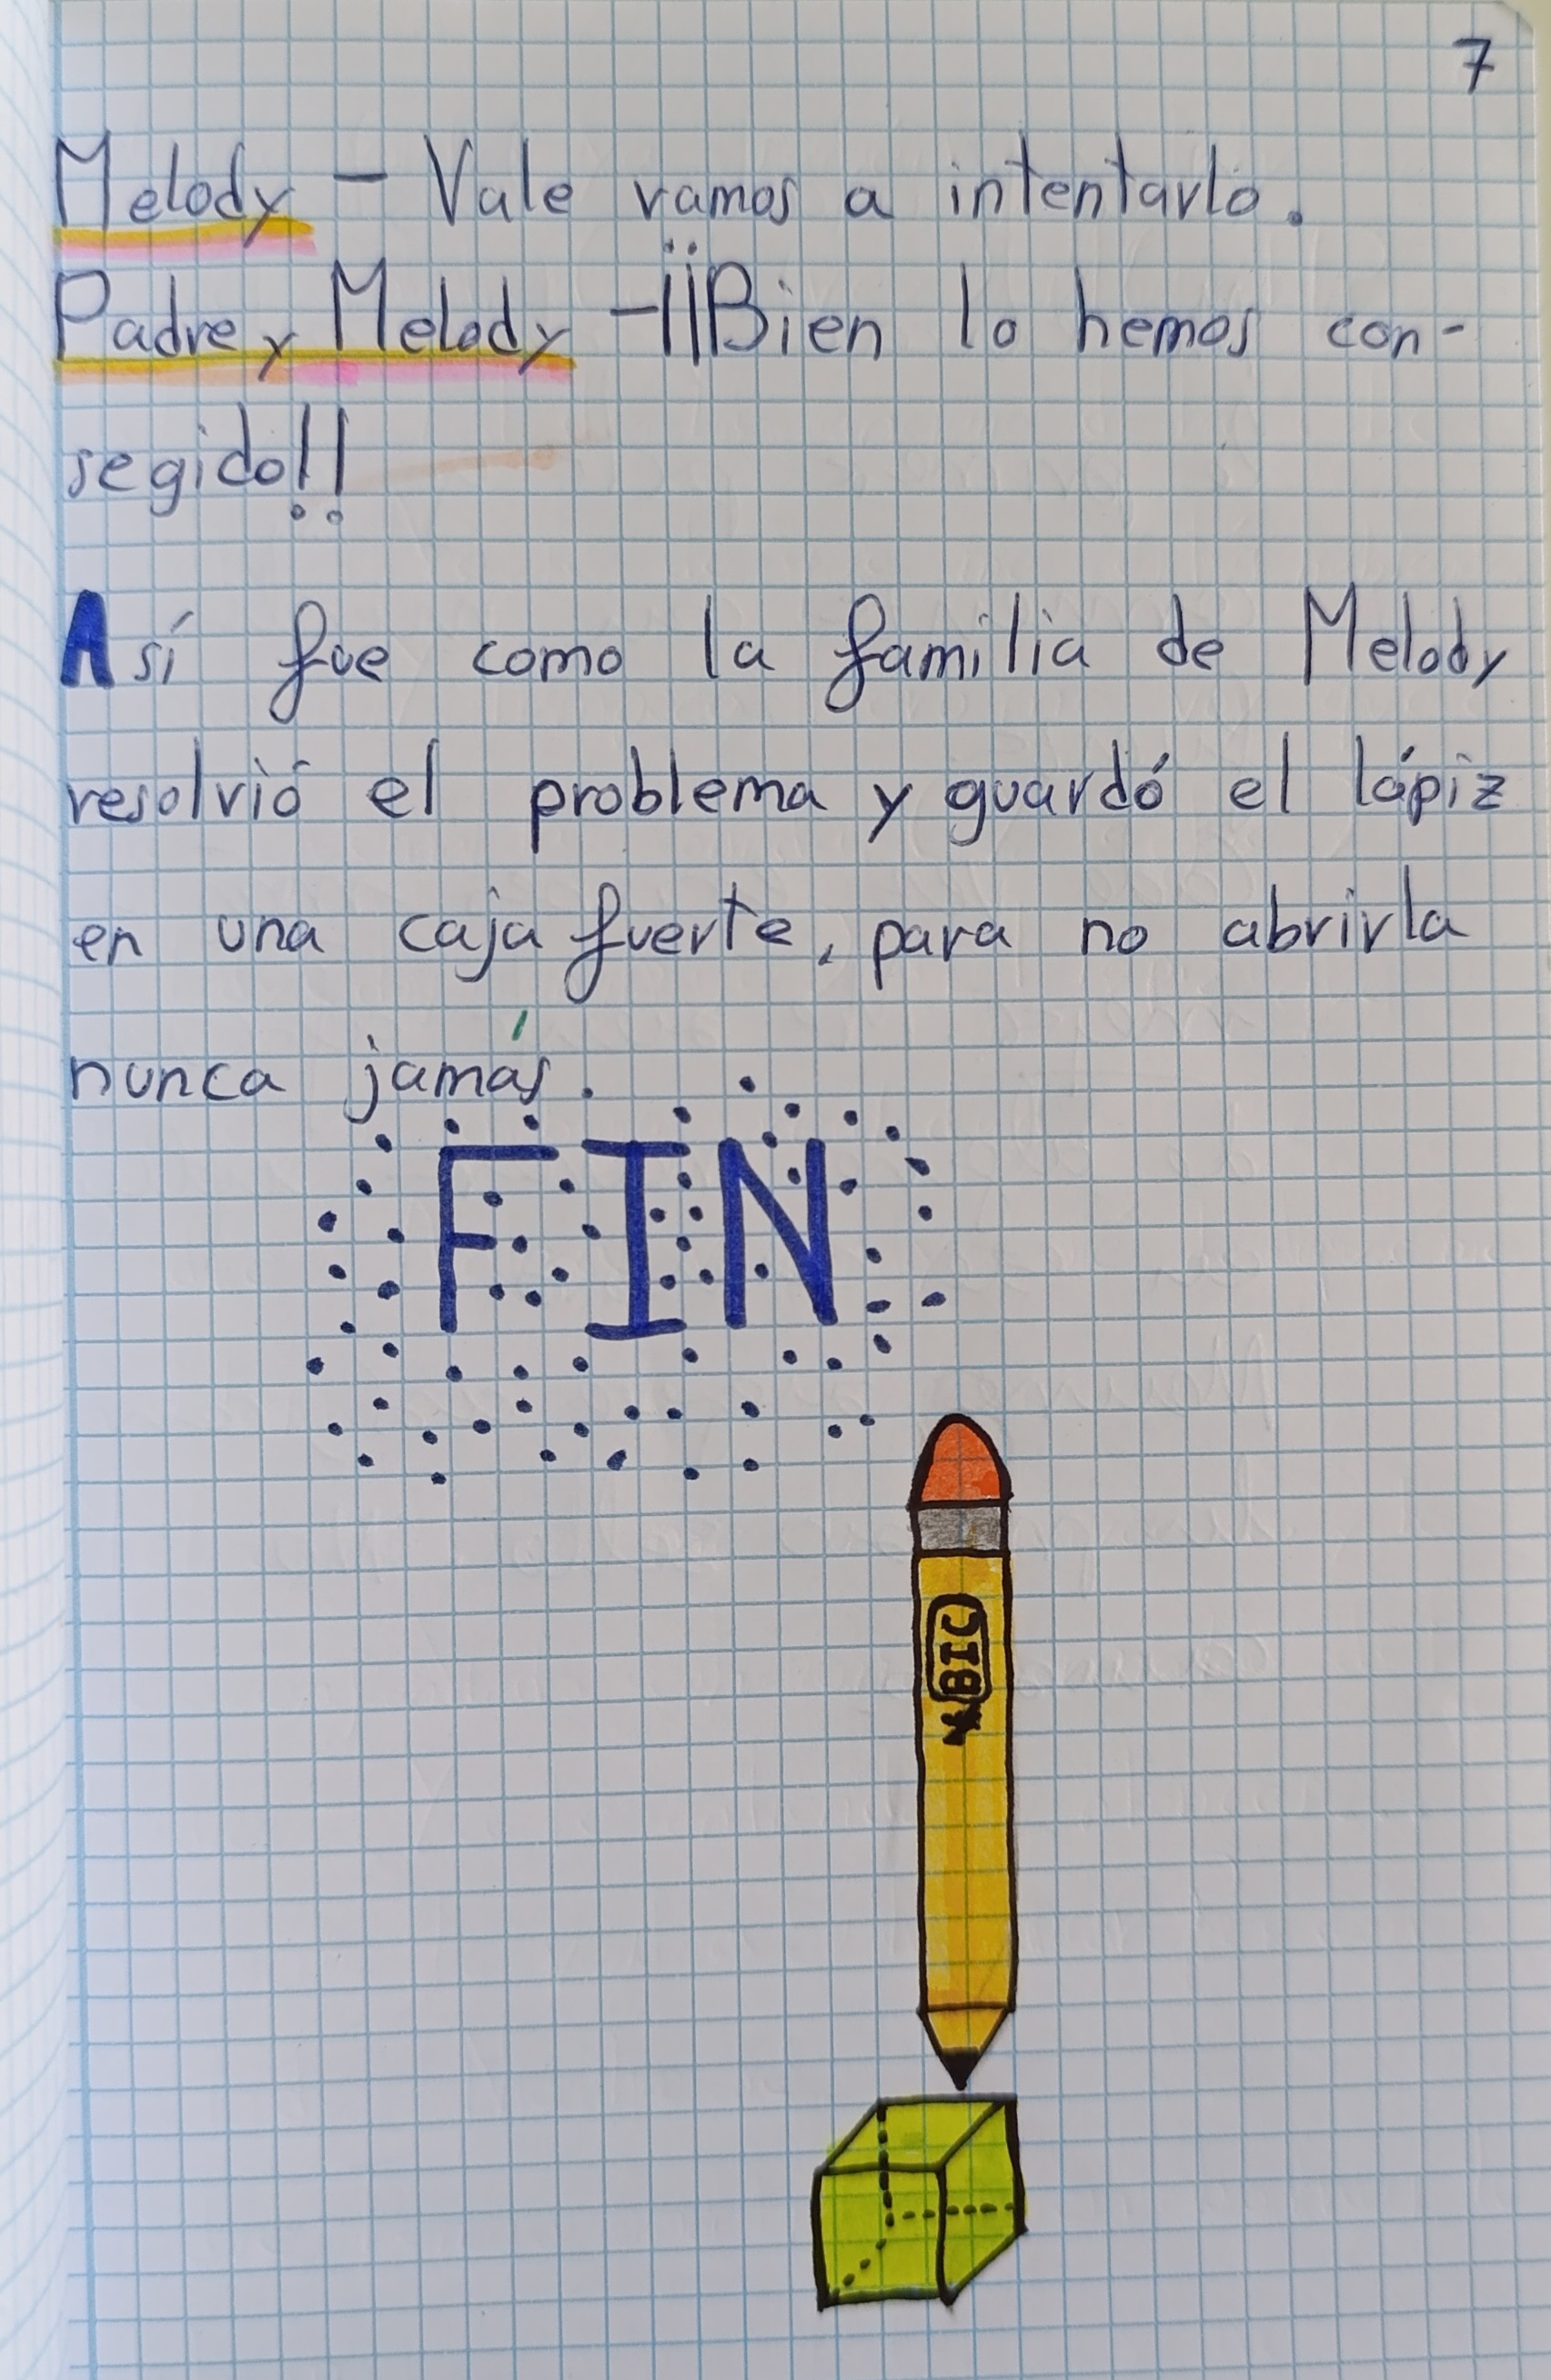 7
Melody - Vale vamos a intentarlo.
Padre y Melody -¡¡Bien lo hemos con-
segido!!
Así fue como la familia de Melody
resolvió el problema y guardó el lápiz
en una caja fuerte, para no abrirla
nunca jamás.
FIN
BIC